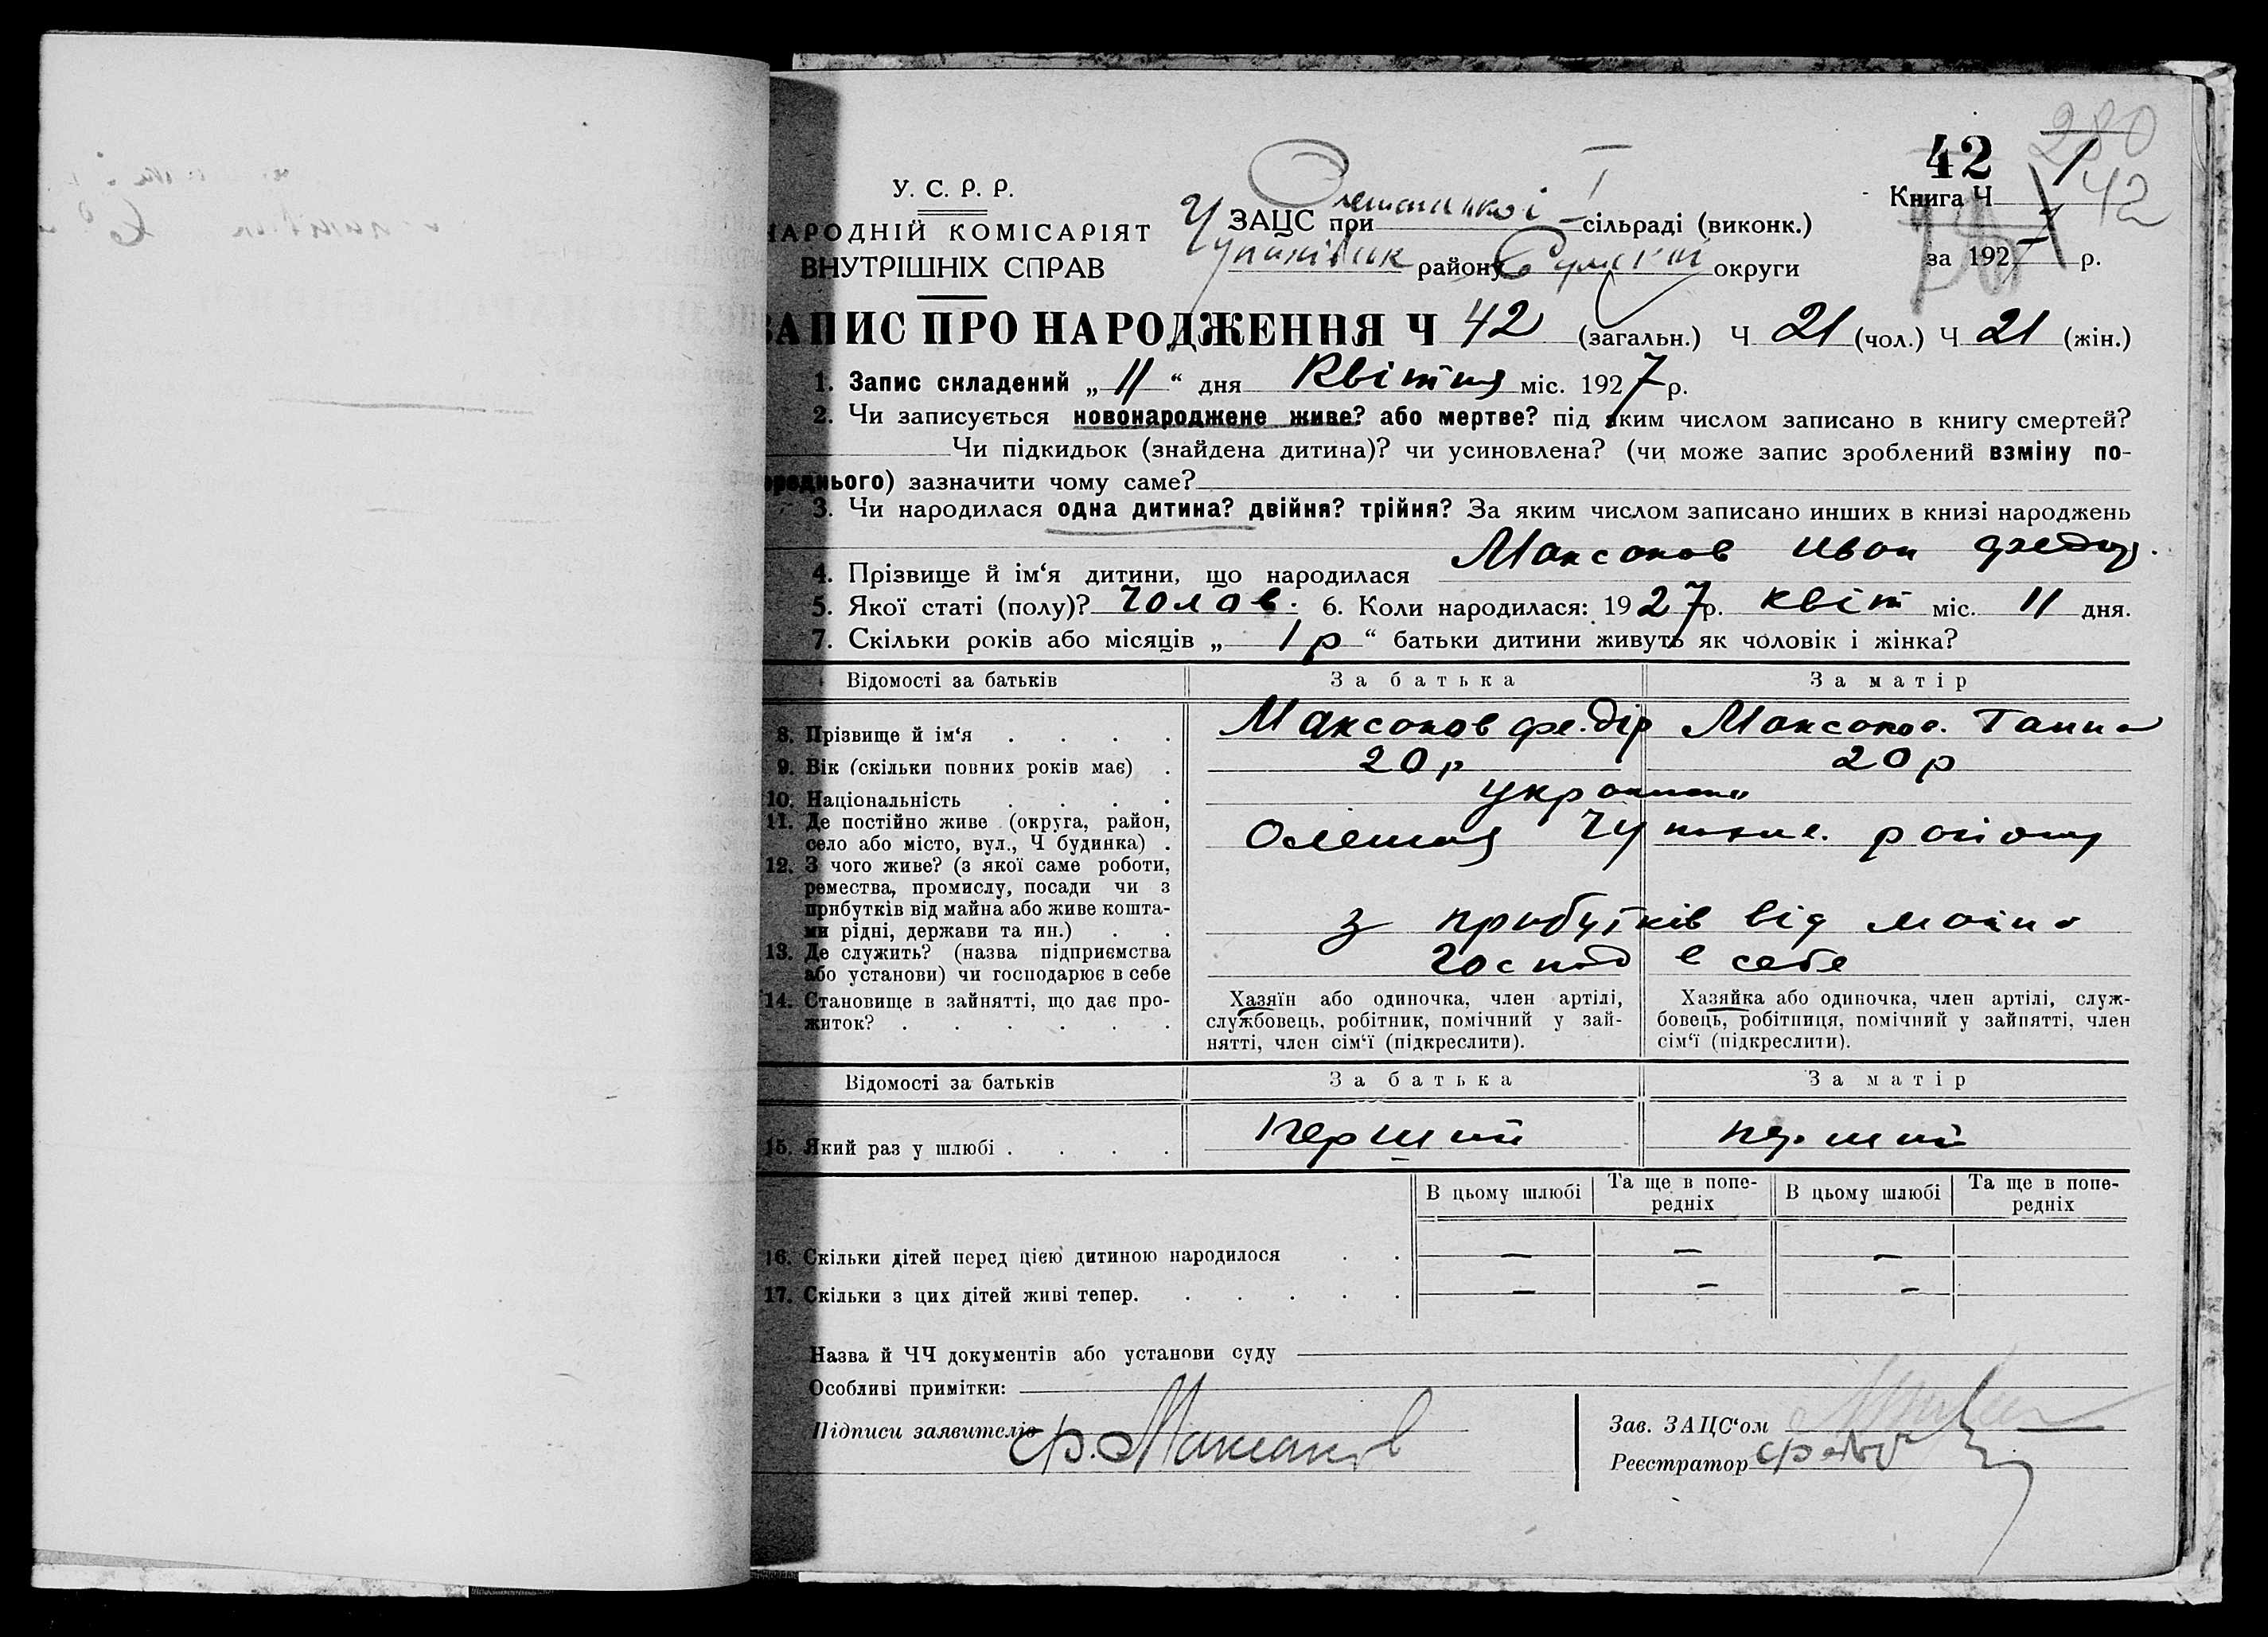 280
42
У. С. Р. Р.
НАРОДНІЙ КОМІСАРІЯТ
ВНУТРІШНІХ СПРАВ
ЗАЦС при I сільраді (виконк.)
району Сумської округи
Книга Ч 1
42
за 192 р.
ЗАПИС ПРО НАРОДЖЕННЯ Ч 42 (загальн.) Ч 21 (чол.) Ч 21 (жін.)
1. Запис складений „ 11 “ дня Квітня міс. 1927 р.
2. Чи записується новонароджене живе? або мертве? під яким числом записано в книгу смертей?
Чи підкидьок (знайдена дитина)? чи усиновлена? (чи може запис зроблений взміну по-
переднього) зазначити чому саме?
3. Чи народилася одна дитина? двійня? трійня? За яким числом записано инших в книзі народжень
4. Прізвище й ім‘я дитини, що народилася Максаков Иван Федор.
5. Якої статі (полу)? Чолов. 6. Коли народилася: 1927 р. квіт міс. 11 дня.
7. Скільки років або місяців „ 1 р “ батьки дитини живуть як чоловік і жінка?
Відомості за батьків За батька За матір
8. Прізвище й ім‘я . . . . Максаков Федір Максаков. Ганна
9. Вік (скільки повних років має) . 20 р 20 р
10. Національність . . . .
11. Де постійно живе (округа, район,
село або місто, вул., Ч будинка) . Олешня району
12. З чого живе? (з якої саме роботи,
ремества, промислу, посади чи з
прибутків від майна або живе кошта-
ми рідні, держави та ин.) . . з прибутків від майна
13. Де служить? (назва підприємства
або установи) чи господарює в себе Господ в себе
14. Становище в зайнятті, що дає про-
житок? . . . . . .
Хазяїн або одиночка, член артілі,
службовець, робітник, помічний у зай-
нятті, член сім‘ї (підкреслити).
Хазяйка або одиночка, член артілі, служ-
бовець, робітниця, помічний у зайнятті, член
сім‘ї (підкреслити).
Відомості за батьків За батька За матір
15. Який раз у шлюбі . . . . Перший перший
В цьому шлюбі Та ще в попе-
редніх В цьому шлюбі Та ще в попе-
редніх
16. Скільки дітей перед цією дитиною народилося . . — — —
17. Скільки з цих дітей живі тепер. . . . . . — — —
Назва й ЧЧ документів або установи суду
Особливі примітки:
Підписи заявителів Ф. Максаков
Зав. ЗАЦС‘ом
Реєстратор